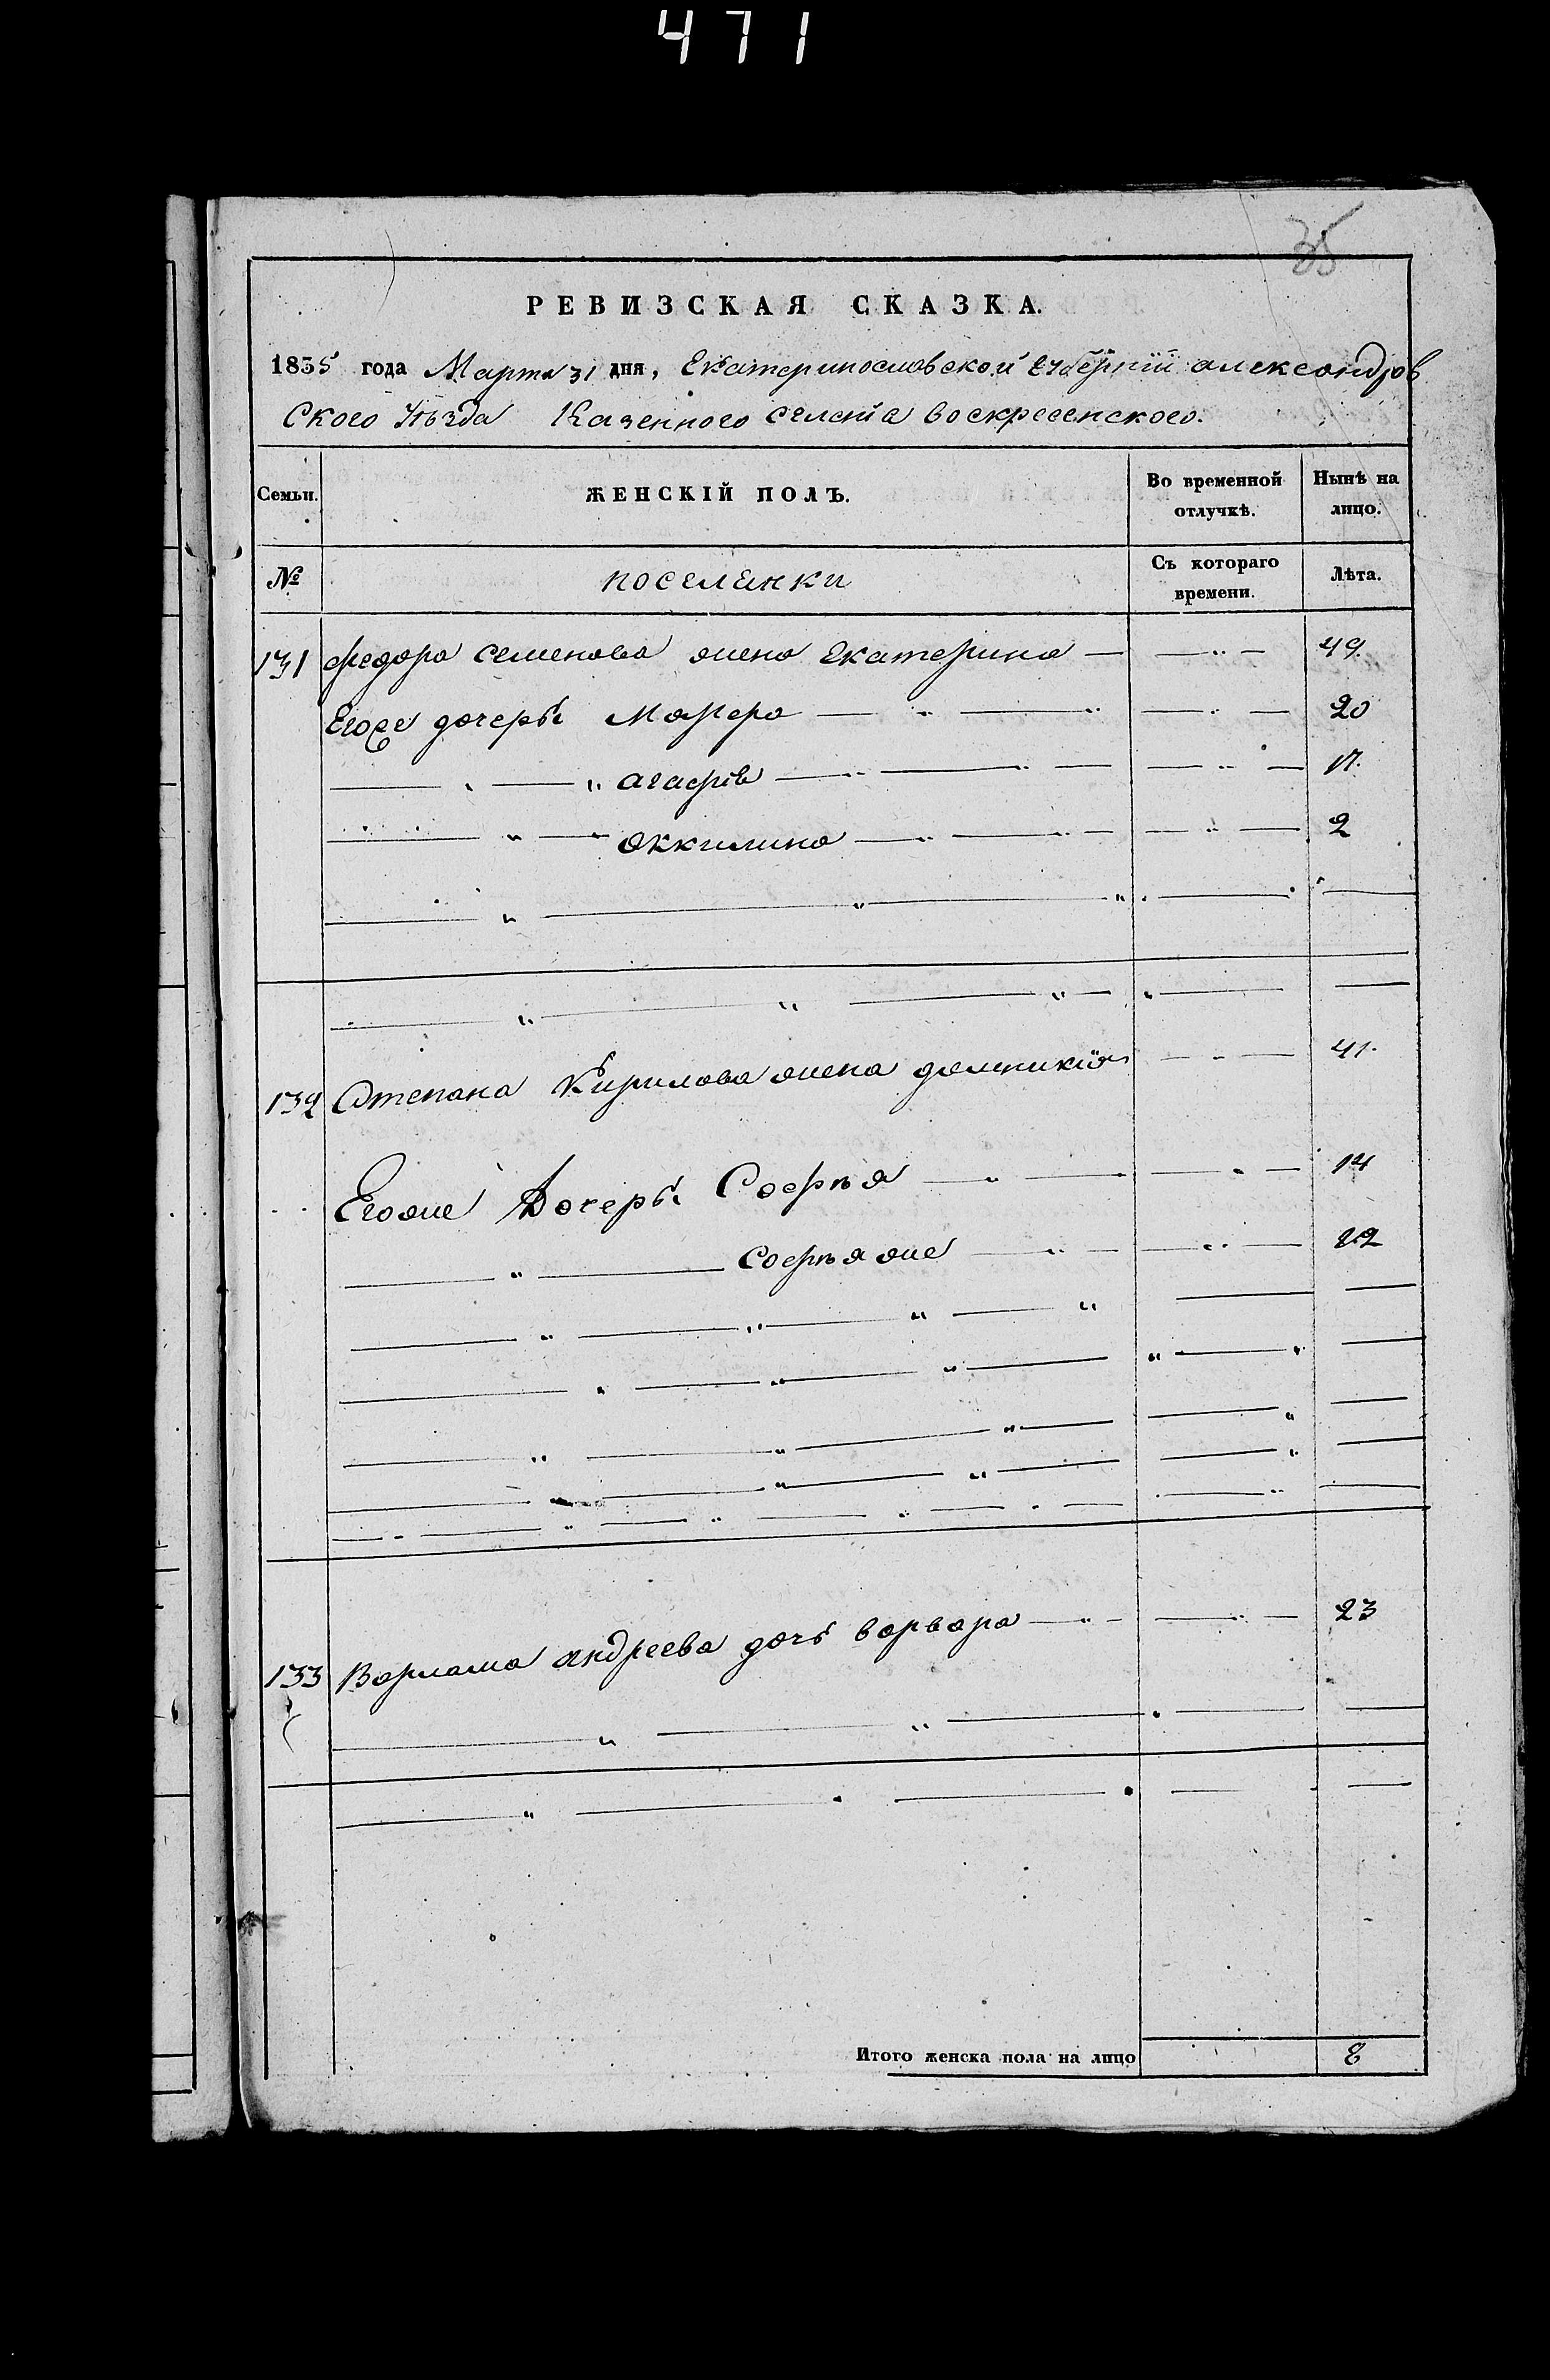 471
35
РЕВИЗСКАЯ СКАЗКА.
1835 года Марта 31 дня, Екатеринославской губернїи александров
ского уѣзда Казенного селенїа воскресенского.
Семьи. ЖЕНСКІЙ ПОЛЪ. Во временной отлучкѣ. Нынѣ на лицо.
№ поселянки Съ котораго времени. Лѣта.
131 Федора семенова жена Екатерина 49.
Егоже дочери 20
агафїя 17.
аккилина 2
132 Степана Кирилова жена домникїя 41.
Егоже Дочери Софья 14
Софья же
133 Варлама андреева дочь варвара 23
Итого женска пола на лицо 8